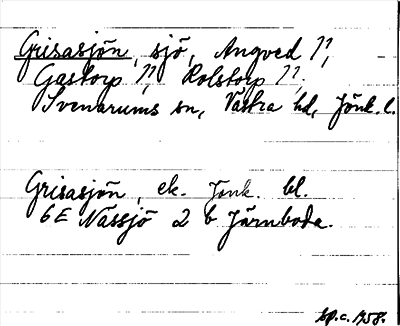 Grisasjön, sjö, Angved 1/1,
Gastorp 1/1, Rolstorp 1/1.
Svenarums sn, Västra hd, Jönk. l.
Grisasjön, ek. Jönk. bl.
6E Nässjö 2 b Järnboda.
sp.c. 1958.